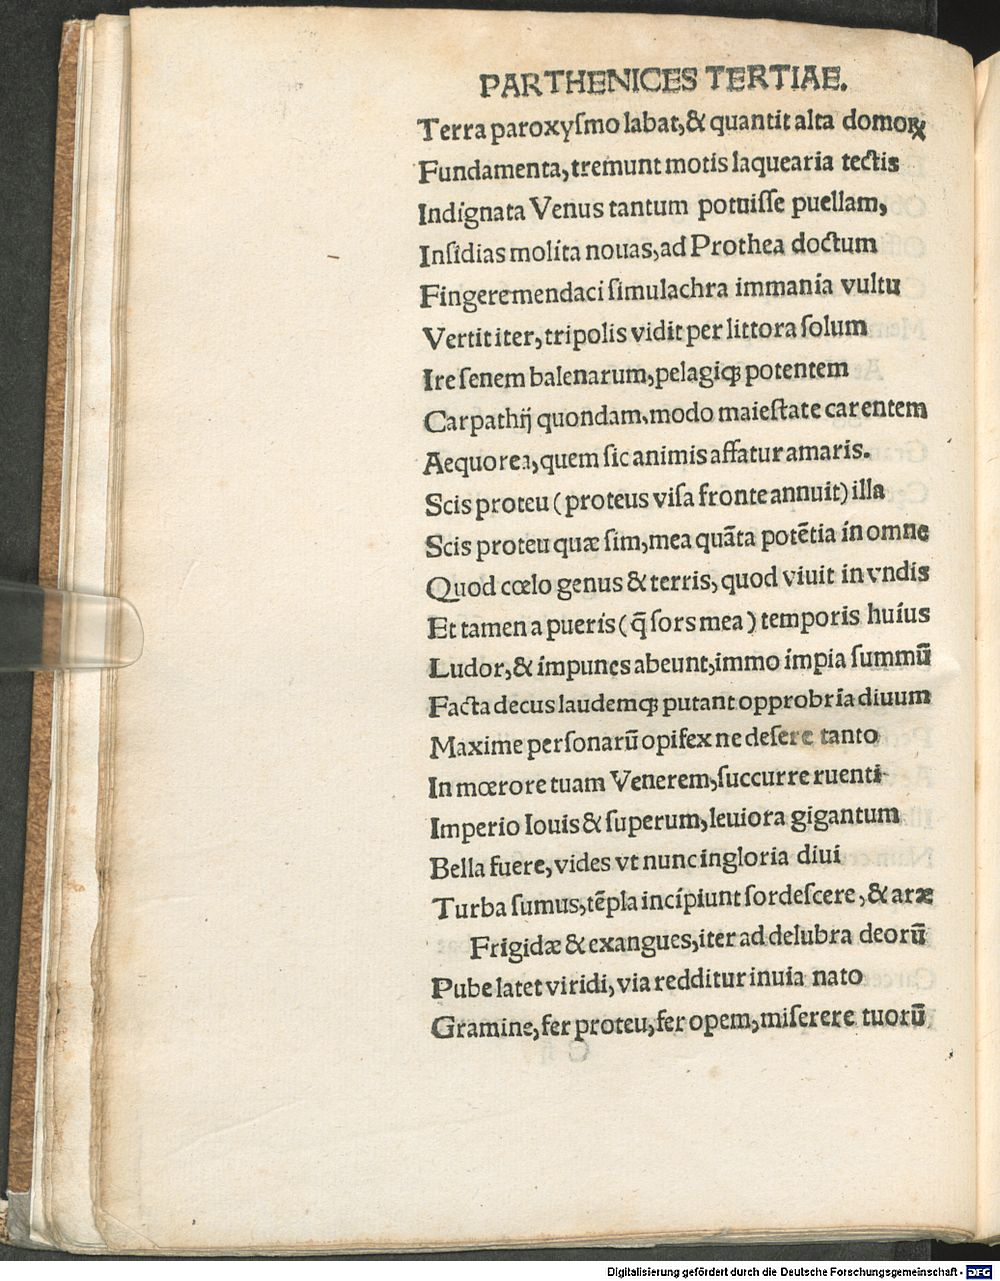 PARTHENICES TERTIAE.
Terra paroxyſmo labat, & quantit alta domoꝝ
Fundamenta, tremunt motis laquearia tectis
Indignata Venus tantum potuiſſe puellam,
Inſidias molita nouas, ad Prothea doctum
Fingere mendaci ſimulachra immania vultu
Vertit iter, tripolis vidit per littora ſolum
Ire ſenem balenarum, pelagiqꝫ potentem
Carpathij quondam, modo maieſtate carentem
Aequorea, quem ſic animis affatur amaris.
Scis proteu (proteus viſa fronte annuit) illa
Scis proteu quæ ſim, mea quãta potẽtia in omne
Quod cœlo genus & terris, quod viuit in vndis
Et tamen a pueris (q̃ ſors mea) temporis huius
Ludor, & impunes abeunt, immo impia ſummũ
Facta decus laudemqꝫ putant opprobria diuum
Maxime perſonarũ opifex ne deſere tanto
In mœrore tuam Venerem, ſuccurre ruenti
Imperio Iouis & ſuperum, leuiora gigantum
Bella fuere, vides vt nunc ingloria diui
Turba ſumus, tẽpla incipiunt ſordeſcere, & aræ
Frigidæ & exangues, iter ad delubra deorũ
Pube latet viridi, via redditur inuia nato
Gramine, fer proteu, fer opem, miſerere tuorũ
Digitalisierung gefördert durch die Deutsche Forschungsgemeinschaft - DFG